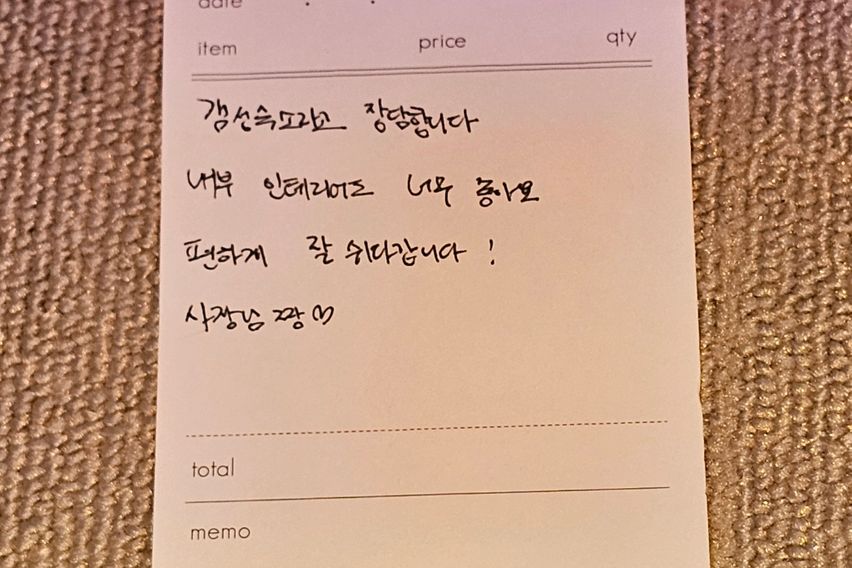 date . .
item price qty
갬성숙소라고 장담합니다
내부 인테리어도 너무 좋아요
편하게 잘 쉬다갑니다 !
사장님 짱♡
total
memo